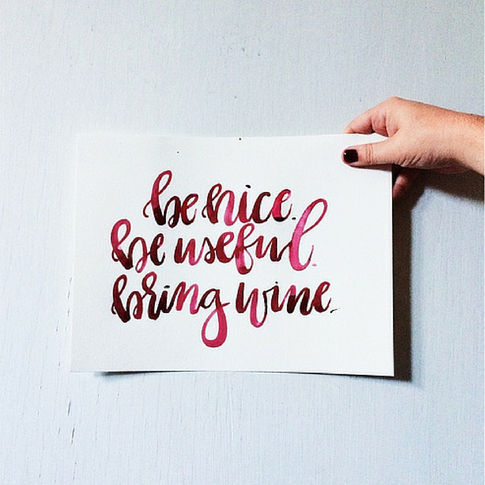 be nice.
be useful.
bring wine.